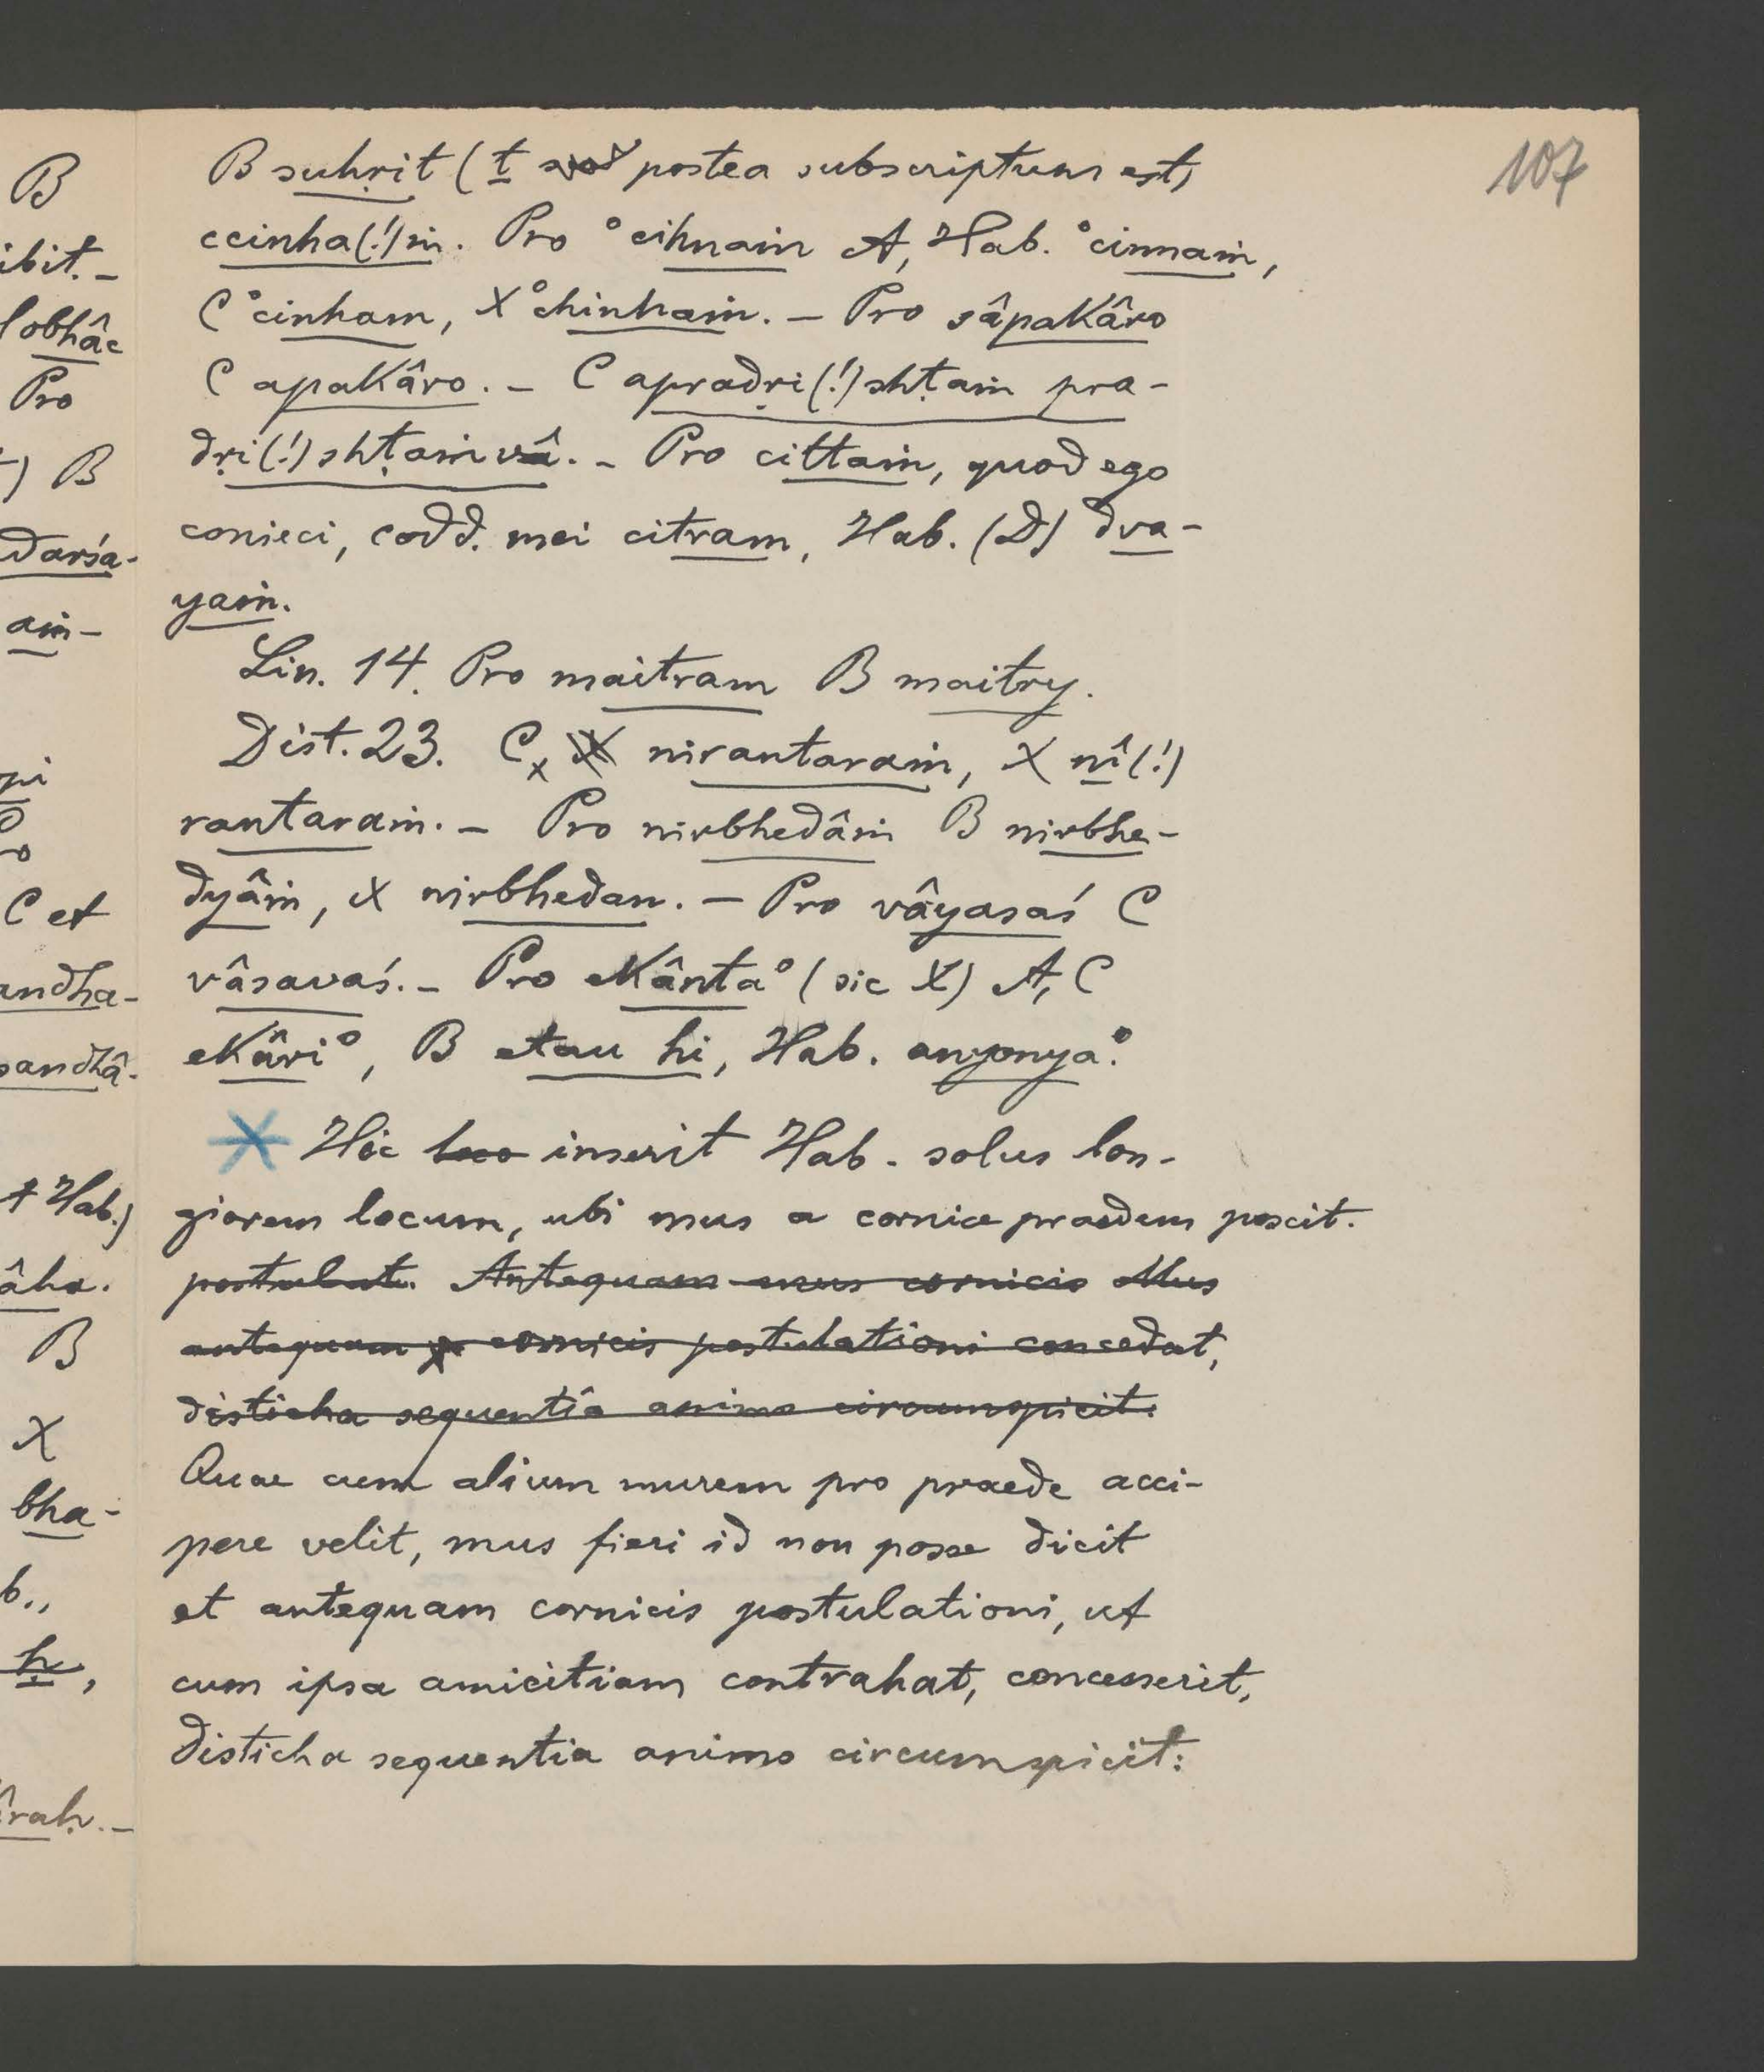 107
B suhṛit (t postea subscriptum est)
ccinha(!)ṁ. Pro °cihnaṁ A, Hab. °cinnaṁ,
C °cinham, X °chinhaṁ. – Pro sâpakâro
C apakâro. – C apradṛi(!)shṭaṁ pra-
dṛi(!)shṭaṁ vâ. – Pro cittaṁ, quod ego
conieci, codd. mei citram, Hab. (D) dva-
yaṁ.
Lin. 14. Pro maitram B maitry.
Dist. 23. C, X nirantaraṁ, X nî(!)
rantaraṁ. – Pro nirbhedâṁ B nirbhe-
dyâṁ, X nirbhedan. – Pro vâyasaś C
vâsavaś. – Pro ekânta° (sic X) A, C
ekâri°, B etau hi, Hab. anyonya°.
Hic loco inserit Hab. solus lon-
giorem locum, ubi mus a cornice praedem poscit.
postulat. Antequam mus cornicis Mus
antequam cornicis postulationi concedat,
disticha sequentia animo circumspicit.
Quae cum alium murem pro praede acci-
pere velit, mus fieri id non posse dicit
et antequam cornicis postulationi, ut
cum ipsa amicitiam contrahat, concesserit,
disticha sequentia animo circumspicit:
B
ibit. –
lobhâc
Pro
) B
darśa-
aṁ –
pi
C et
andha-
sandhâ-
t Hab.)
âha.
B
X
bha-
b.,
h,
âraḥ. –